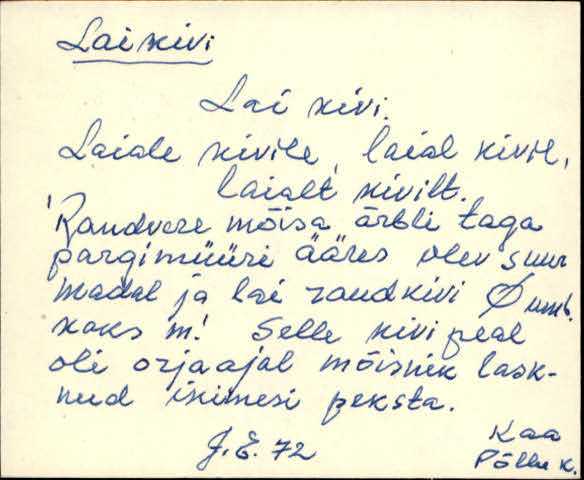 Lai kivi
Lai kivi.
Laiale kivile, laial kivil,
laialt kivilt.
'Randvere mõisa ärbli taga
pargimüüri ääres olev suur
madal ja lai raudkivi Ø umb.
kaks m! Selle kivi peal
oli orjaajal mõisnik lask-
nud inimesi peksta.
J.E. 72
Kaa
Põllu k.